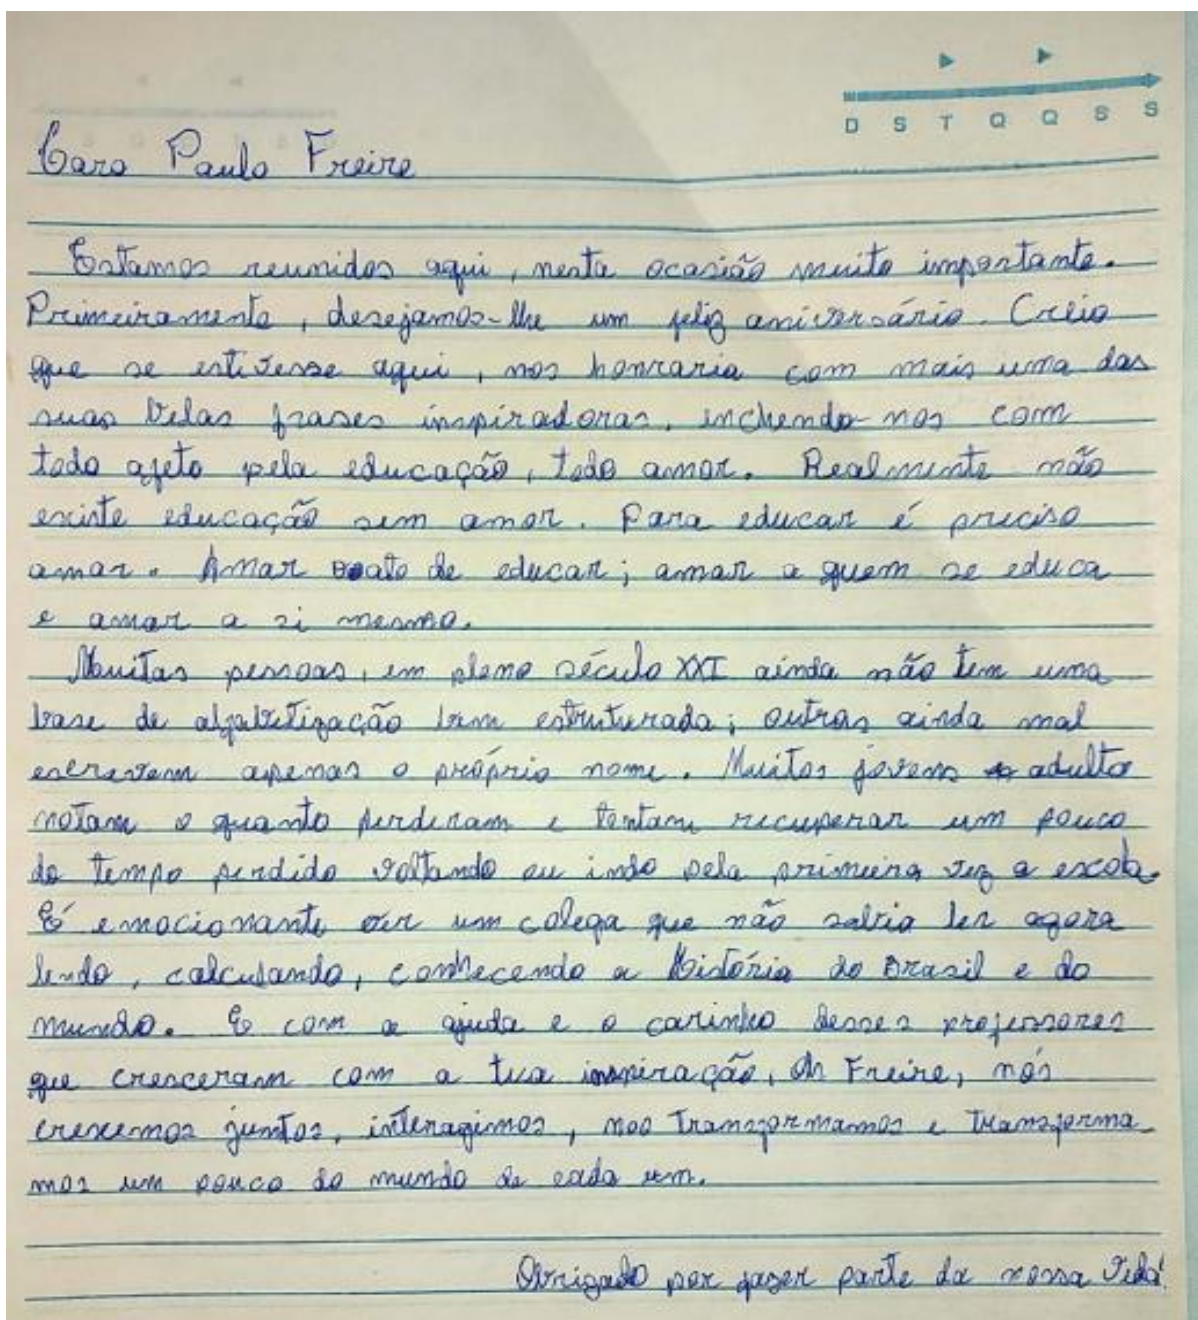 D S T Q Q S S
Caro Paulo Freire
Estamos reunidos aqui, nesta ocasião muito importante.
Primeiramente, desejamos-lhe um feliz aniversário. Creio
que se estivesse aqui, nos honraria com mais uma das
suas belas frases inspiradoras, inchendo-nos com
todo afeto pela educação, todo amor. Realmente não
existe educação sem amor. Para educar é preciso
amar. Amar o ato de educar; amar a quem se educa
e amar a si mesmo.
Muitas pessoas, em pleno século XXI ainda não tem uma
base de alfabetização bem estruturada; outras ainda mal
escrevem apenas o próprio nome. Muitos jovens adulto
notam o quanto perderam e tentam recuperar um pouco
do tempo perdido voltando ou indo pela primeira vez a escola.
É emocionante ver um colega que não sabia ler agora
lendo, calculando, conhecendo a História do Brasil e do
mundo. E com a ajuda e o carinho desses professores
que cresceram com a tua inspiração, Oh Freire, nós
crescemos juntos, interagimos, nos transformamos e transforma
mos um pouco do mundo de cada um.
Obrigado por fazer parte da nossa vida!